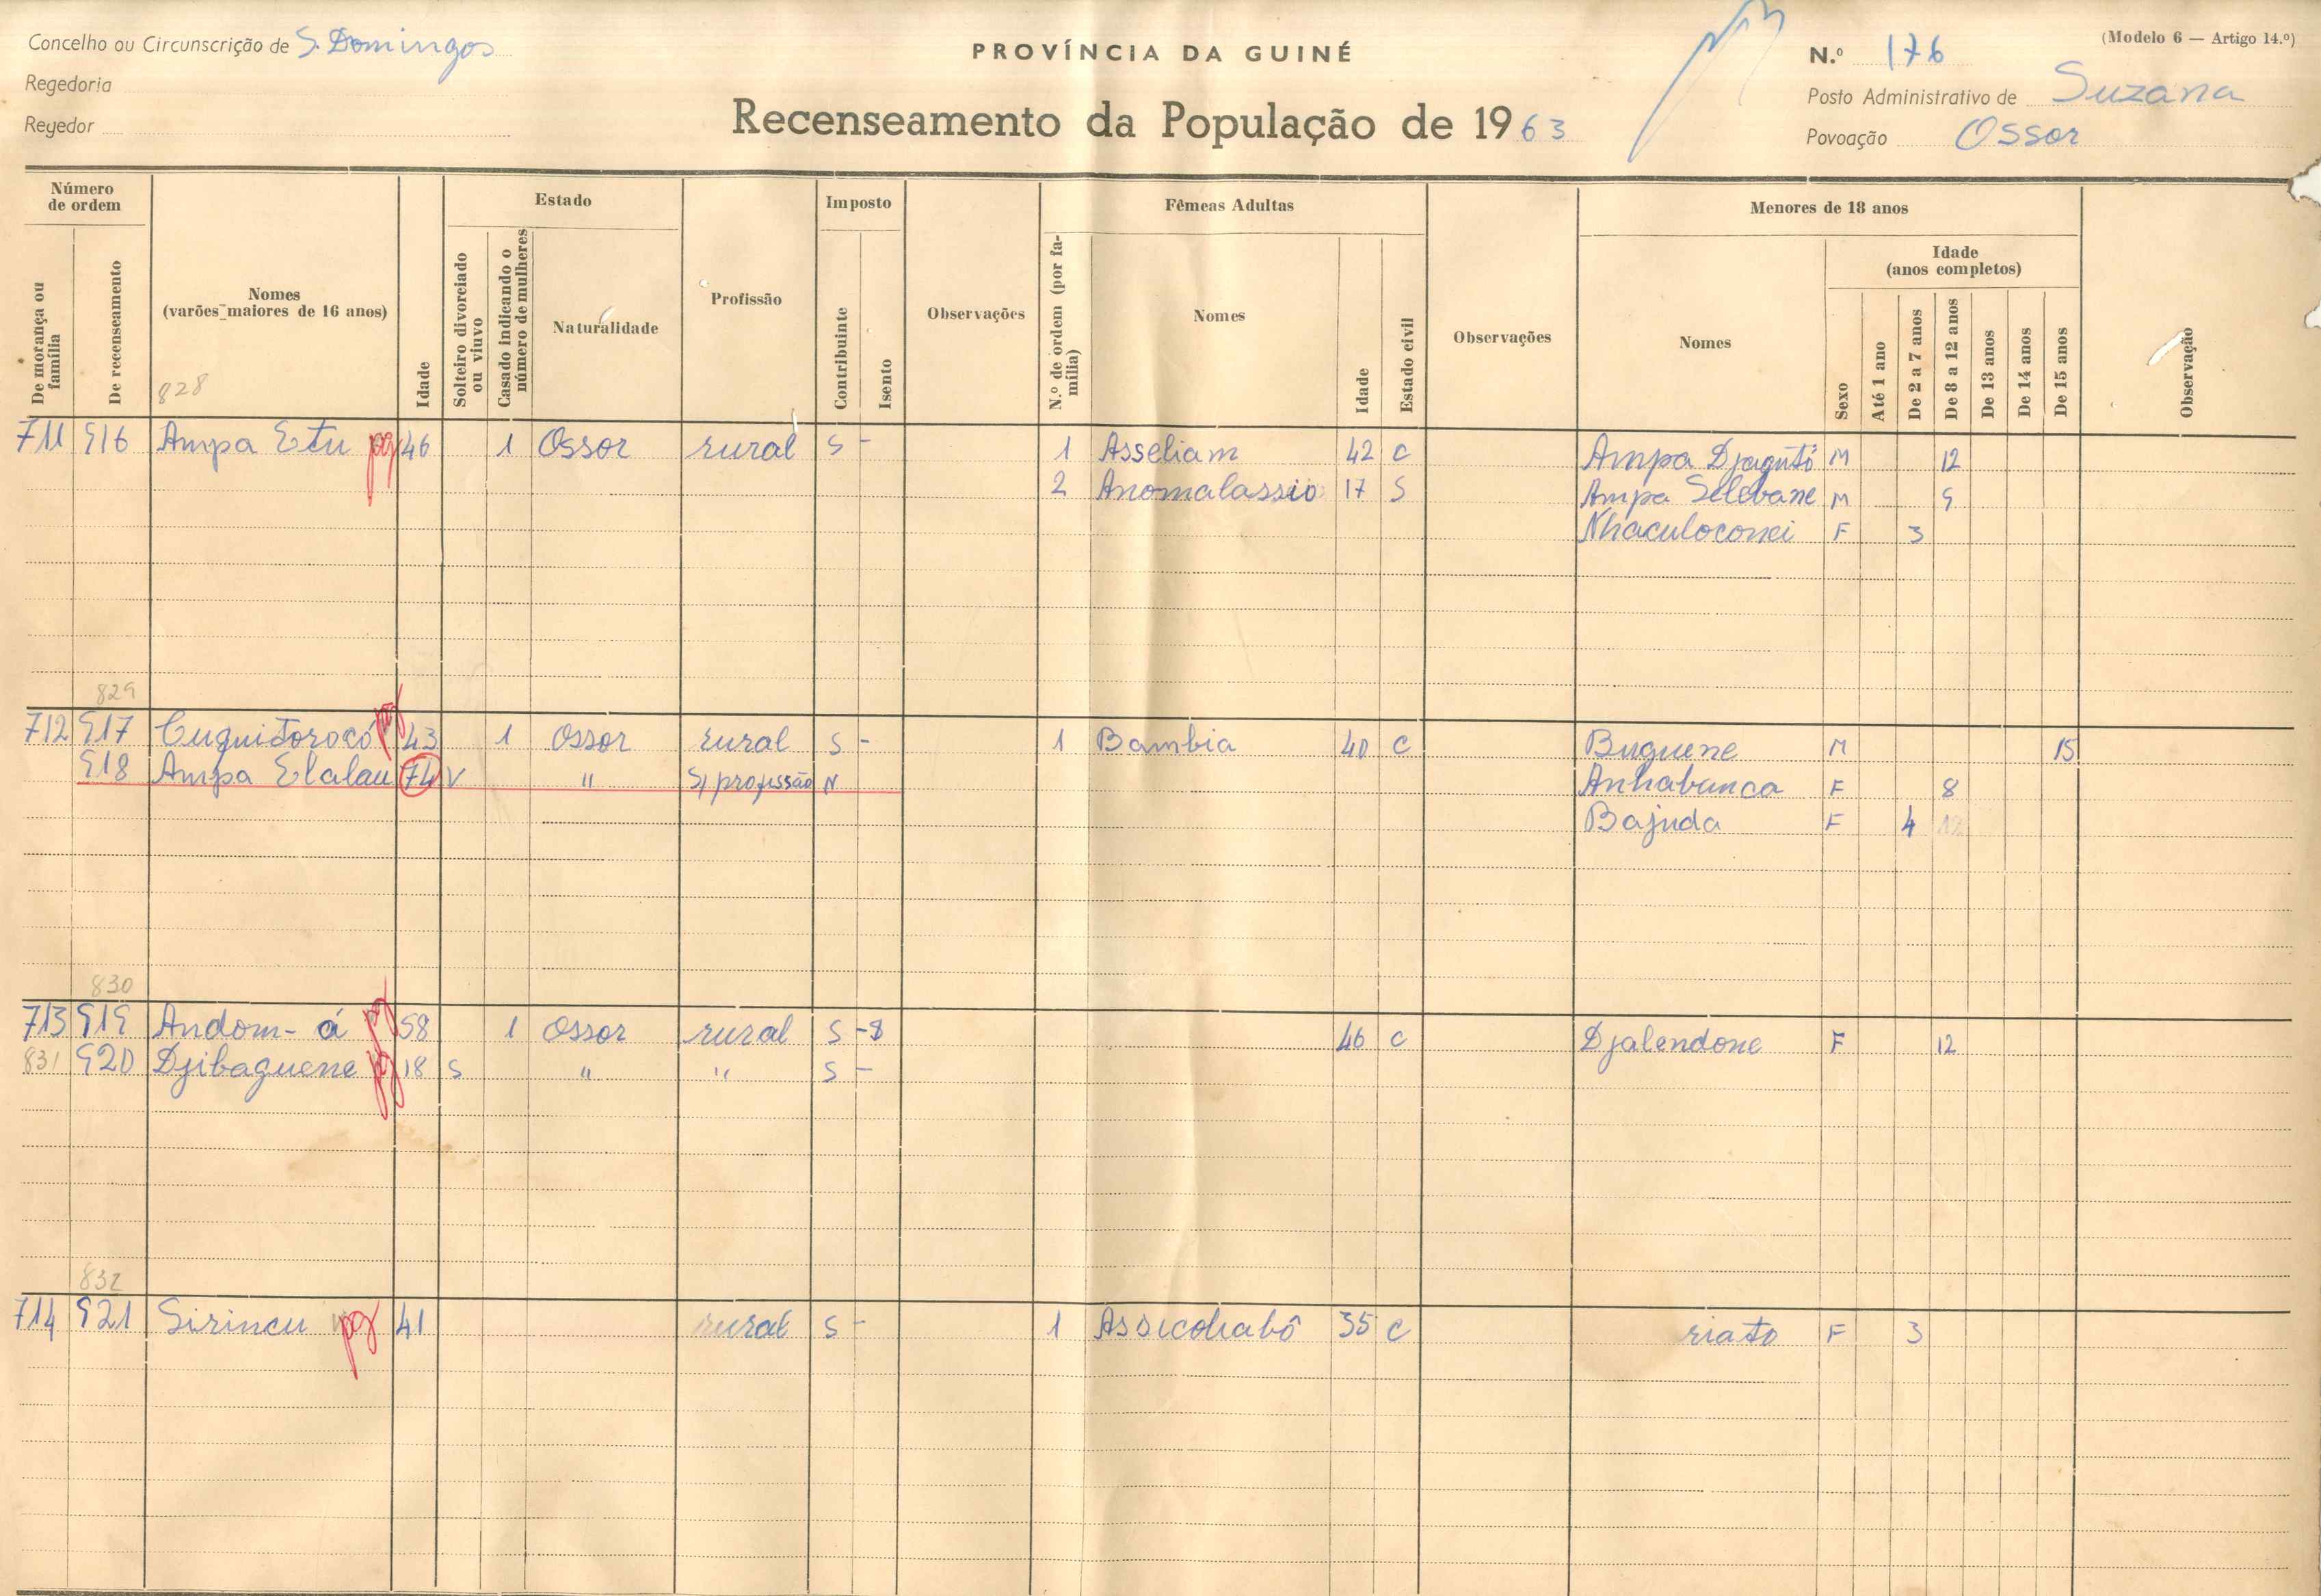 Concelho ou Circunscrição de S. Domingos
Regedoria
Reyedor
PROVÍNCIA DA GUINÉ
Recenseamento da População de 1963
(Modelo 6 — Artigo 14.º)
N.º 176
Posto Administrativo de Suzana
Povoação Ossor
Número de ordem
De morança ou família
De recenseamento
Nomes
(varões maiores de 16 anos)
828
Idade
Estado
Solteiro divorciado ou viuvo
Casado indicando o número de mulheres
Naturalidade
Profissão
Imposto
Contribuinte
Isento
Observações
Fêmeas Adultas
N.º de ordem (por família)
Nomes
Idade
Estado civil
Observações
Menores de 18 anos
Nomes
Sexo
Idade
(anos completos)
Até 1 ano
De 2 a 7 anos
De 8 a 12 anos
De 13 anos
De 14 anos
De 15 anos
Observação
711 916 Ampa Etu pg 46 1 Ossor rural S - 1 Asseliam 42 C Ampa Djaguto M 12
2 Anomalassio 17 S Ampa Selebane M 9
Nhaculoconei F 3
829
712 917 Cuguitorocó pg 43 1 Ossor rural S - 1 Bambia 40 C Buguene M 15
918 Ampa Elalau 74 V " S/ profissão N Anhabunca F 8
Bajuda F 4
830
713 919 Andom-á pg 58 1 Ossor rural S - 8 46 C Djalendone F 12
831 920 Djibaguene pg 18 S " " S -
832
714 921 Sirincu pg 41 rural S - 1 Assicohabô 35 C riato F 3